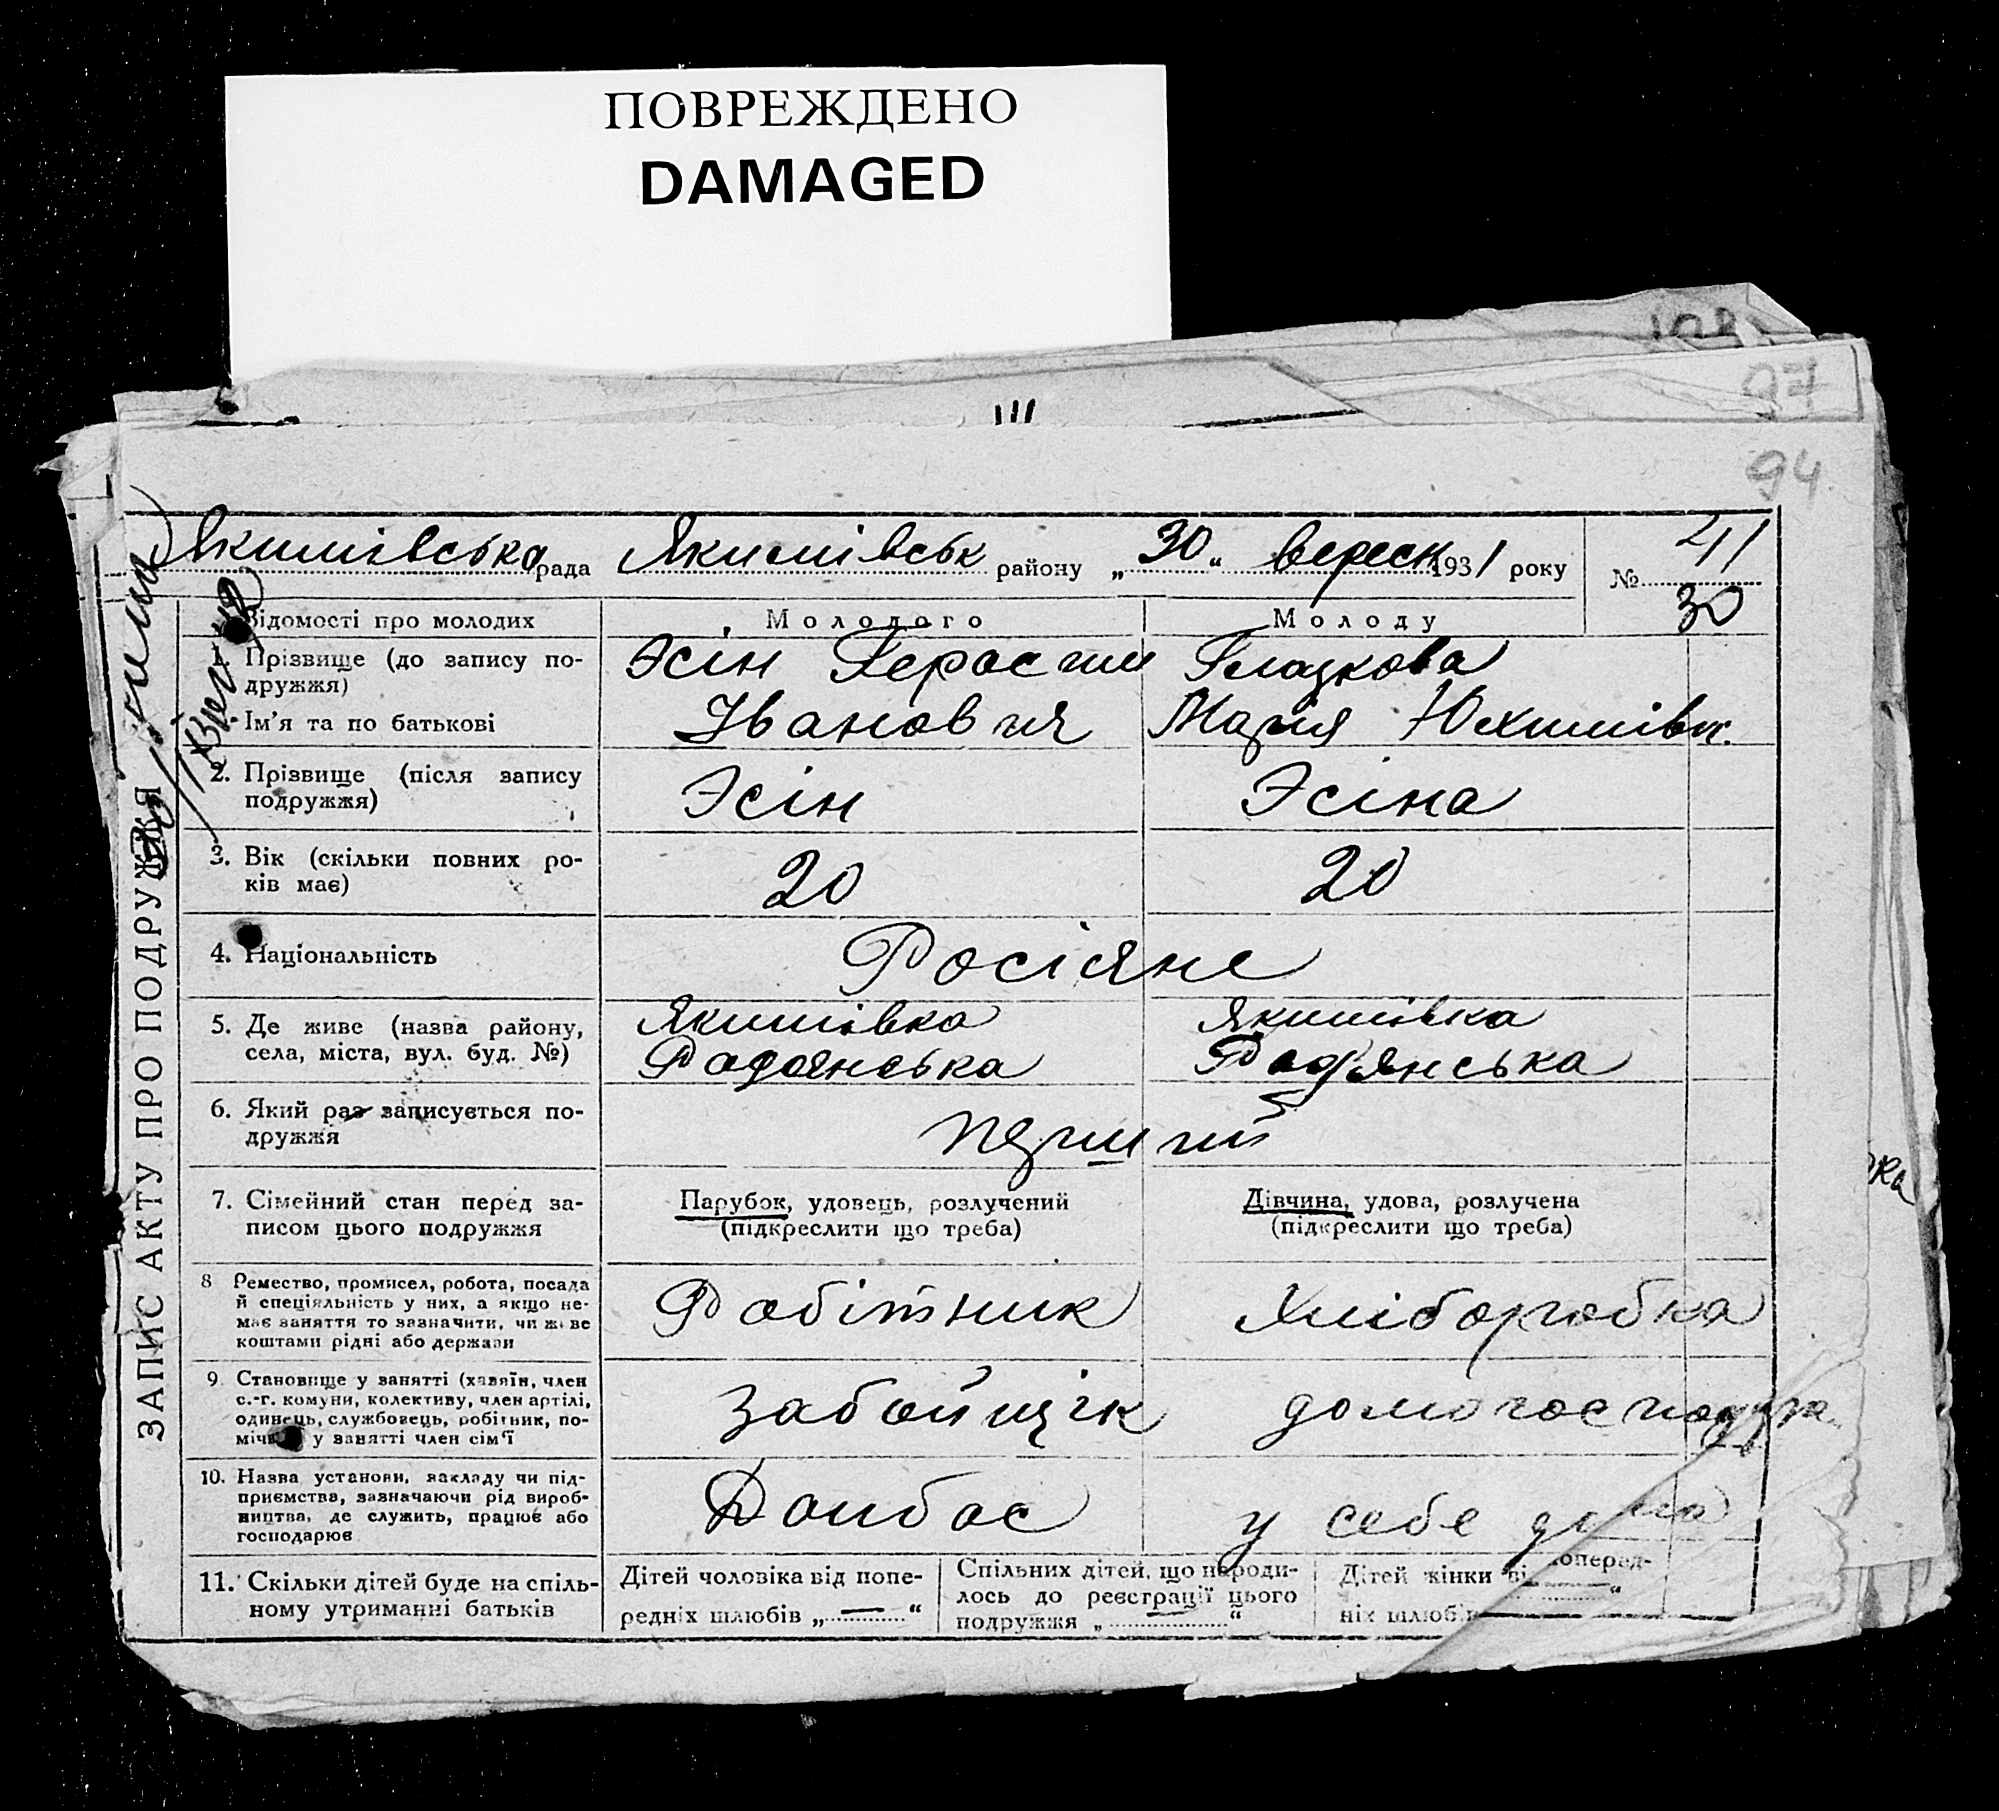 ПОВРЕЖДЕНО
DAMAGED
97
94
Якимівська рада Якимівськ району „30“ вересн 1931 року № 41
30
Відомості про молодих
Молодого
Молоду
ЗАПИС АКТУ ПРО ПОДРУЖЖЯ
1. Прізвище (до запису по-
дружжя)
Ім’я та по батькові
Эсін Герасим
Іванович
Глазкова
Марія Юхимівн.
2. Прізвище (після запису
подружжя)
Эсін
Эсіна
3. Вік (скільки повних ро-
ків має)
20
20
4. Національність
Росіяне
5. Де живе (назва району,
села, міста, вул. буд. №)
Якимівка
Радянська
Якимівка
Радянська
6. Який раз записується по-
дружжя
перший
7. Сімейний стан перед за-
писом цього подружжя
Парубок, удовець, розлучений
(підкреслити що треба)
Дівчина, удова, розлучена
(підкреслити що треба)
8 Ремество, промисел, робота, посада
й спеціяльність у них, а якщо не-
має заняття то зазначити, чи живе
коштами рідні або держави
Робітник
Хліборобка
9. Становище у занятті (хазяїн, член
с.-г. комуни, колективу, член артілі,
одинець, службовець, робітник, по-
мічн у занятті член сім’ї
Забойщік
домогосподарка
10. Назва установи, закладу чи під-
приємства, зазначаючи рід вироб-
ництва, де служить, працює або
господарює
Донбас
у себе дома
11. Скільки дітей буде на спіль-
ному утриманні батьків
Дітей чоловіка від попе-
редніх шлюбів „ — “
Спільних дітей, що народи-
лось до реєстрації цього
подружжя „ — “
Дітей жінки ві поперед-
ніх шлюбів — “